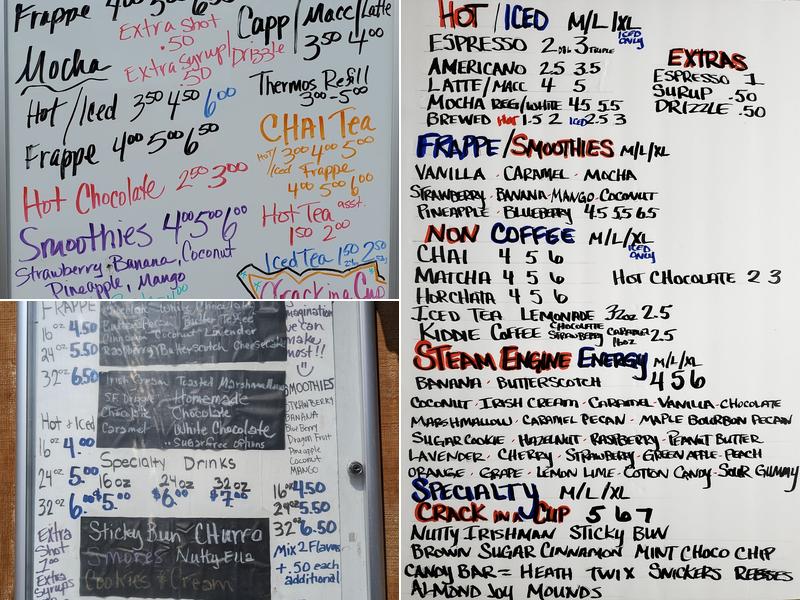 Frappe 4⁰⁰ 5⁰⁰ 6⁵⁰
Extra Shot
.50
Extra Syrup/Drizzle
.50
Mocha
Hot/Iced 3⁵⁰ 4⁵⁰ 6⁰⁰
Frappe 4⁰⁰ 5⁰⁰ 6⁵⁰
Hot Chocolate 2⁵⁰ 3⁰⁰
Smoothies 4⁰⁰ 5⁰⁰ 6⁰⁰
Strawberry, Banana, Coconut
Pineapple, Mango
Capp/Macc/Latte
3⁵⁰ 4⁰⁰
Thermos Refill
3⁰⁰-5⁰⁰
CHAI Tea
HOT/Iced 3⁰⁰ 4⁰⁰ 5⁰⁰
Frappe
4⁰⁰ 5⁰⁰ 6⁰⁰
Hot Tea asst.
1⁵⁰ 2⁰⁰
Iced Tea 1⁵⁰ 2⁵⁰
Crack in a Cup
FRAPPE
16oz 4.50
24oz 5.50
32oz 6.50
Hot & Iced
16oz 4.00
24oz 5.00
32oz 6.00
Extra
Shot
Extra
Syrups
Chocolate White Chocolate
Butter Pecan Butter Toffee
Coconut Lavender
Raspberry Butterscotch Cheesecake
Irish Cream Toasted Marshmallow
Homemade
Chocolate Chocolate
Caramel White Chocolate
Sugar free options
Specialty Drinks
16oz 24oz 32oz
$5.00 $6.00 $7.00
Sticky Bun Churro
Smores Nutty Ella
Cookies & Cream
imagination
we can
make
most!!
SMOOTHIES
STRAWBERRY
BANANA
Blue Berry
Dragon Fruit
Pineapple
Coconut
MANGO
16oz 4.50
24oz 5.50
32oz 6.50
Mix 2 Flavors
+.50 each
additional
HOT/ICED M/L/XL ICED ONLY
ESPRESSO 2 DBL 3 TRIPLE
AMERICANO 2.5 3.5
LATTE/MACC 4 5
MOCHA REG/WHITE 4.5 5.5
BREWED HOT 1.5 2 ICED 2.5 3
EXTRAS
ESPRESSO 1
SYRUP .50
DRIZZLE .50
FRAPPE/SMOOTHIES M/L/XL
VANILLA · CARAMEL · MOCHA
STRAWBERRY · BANANA · MANGO · COCONUT
PINEAPPLE · BLUEBERRY 4.5 5.5 6.5
NON COFFEE M/L/XL ICED ONLY
CHAI 4 5 6
MATCHA 4 5 6 HOT CHOCOLATE 2 3
HORCHATA 4 5 6
ICED TEA LEMONADE 32oz 2.5
KIDDIE COFFEE CHOCOLATE STRAWBERRY CARAMEL 16oz 2.5
STEAM ENGINE ENERGY M/L/XL
BANANA · BUTTERSCOTCH 4 5 6
COCONUT · IRISH CREAM · CARAMEL · VANILLA · CHOCOLATE
MARSHMALLOW · CARAMEL PECAN · MAPLE BOURBON PECAN
SUGAR COOKIE · HAZELNUT · RASPBERRY · PEANUT BUTTER
LAVENDER · CHERRY · STRAWBERRY · GREEN APPLE · PEACH
ORANGE · GRAPE · LEMON LIME · COTTON CANDY · SOUR GUMMY
SPECIALTY M/L/XL
CRACK IN A CUP 5 6 7
NUTTY IRISHMAN STICKY BUN
BROWN SUGAR CINNAMON MINT CHOCO CHIP
CANDY BAR = HEATH TWIX SNICKERS REESES
ALMOND JOY MOUNDS